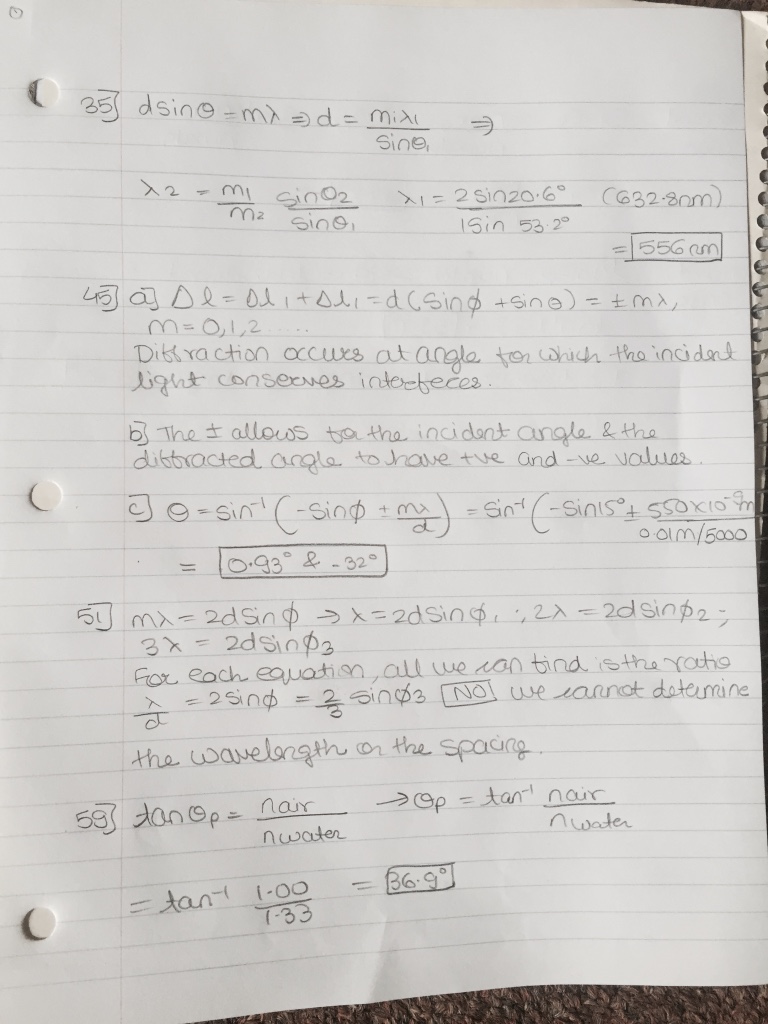 35] dsinθ = mλ ⇒ d = m₁λ₁ / sinθ₁ ⇒
λ2 = m₁/m₂ sinθ₂/sinθ₁ λ₁ = 2 sin20.6° / 1 Sin 53.2° (632.8nm)
= 556 nm
45] a] Δl = Δl₁ + Δl₁ = d(sinϕ + sinθ) = ± mλ,
m = 0,1,2 ....
Diffraction occurs at angle for which the incident
light conserves interfeces.
b] The ± allows for the incident angle & the
diffracted angle to have +ve and -ve values.
c] θ = sin⁻¹ (-Sinϕ ± mλ/d) = Sin⁻¹ (-Sin15° ± 550×10⁻⁹m / 0.01m/5000
= 0.93° & -32°
51] mλ = 2dSinϕ → λ = 2dSinϕ, ; 2λ = 2dsinϕ₂ ;
3λ = 2dSinϕ3
For each equation, all we can find is the ratio
λ/d = 2Sinϕ = 2/3 sinϕ3 NO we cannot determine
the wavelength or the spacing.
59] tanθp = nair / nwater → θp = tan⁻¹ nair / nwater
= tan⁻¹ 1.00 / 1.33 = 36.9°